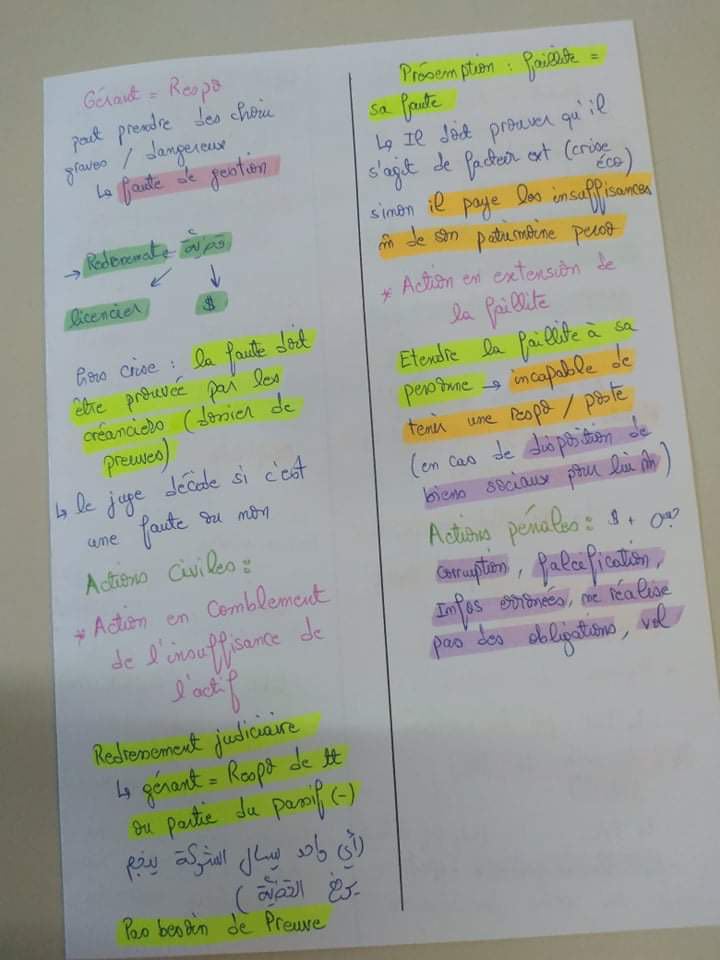 Gérant = Respo
peut prendre des choix
graves / dangereux
↳ faute de gestion
→ Redressemt =
licencier $
hors crise : la faute doit
être prouvée par les
créanciers (dossier de
preuves)
↳ le juge décide si c'est
une faute ou non
Actions Civiles :
* Action en Comblement
de l'insuffisance de
l'actif
Redressement judiciaire
↳ gérant = Respo de tt
ou partie du passif (-)
(أي واحد يسال الشركة يدفع
Pas besoin de Preuve
Présemption : faillite =
sa faute
↳ Il doit prouver qu'il
s'agit de facteur ext (crise
éco)
sinon il paye les insuffisances
m̂ de son patrimoine perso
* Action en extension de
la faillite
Etendre la faillite à sa
personne → incapable de
tenir une respo / poste
(en cas de disposition de
biens sociaux pour lui m̂)
Actions pénales : $ +
Corruption, falcification,
Infos erronées, ne réalise
pas des obligations, vol